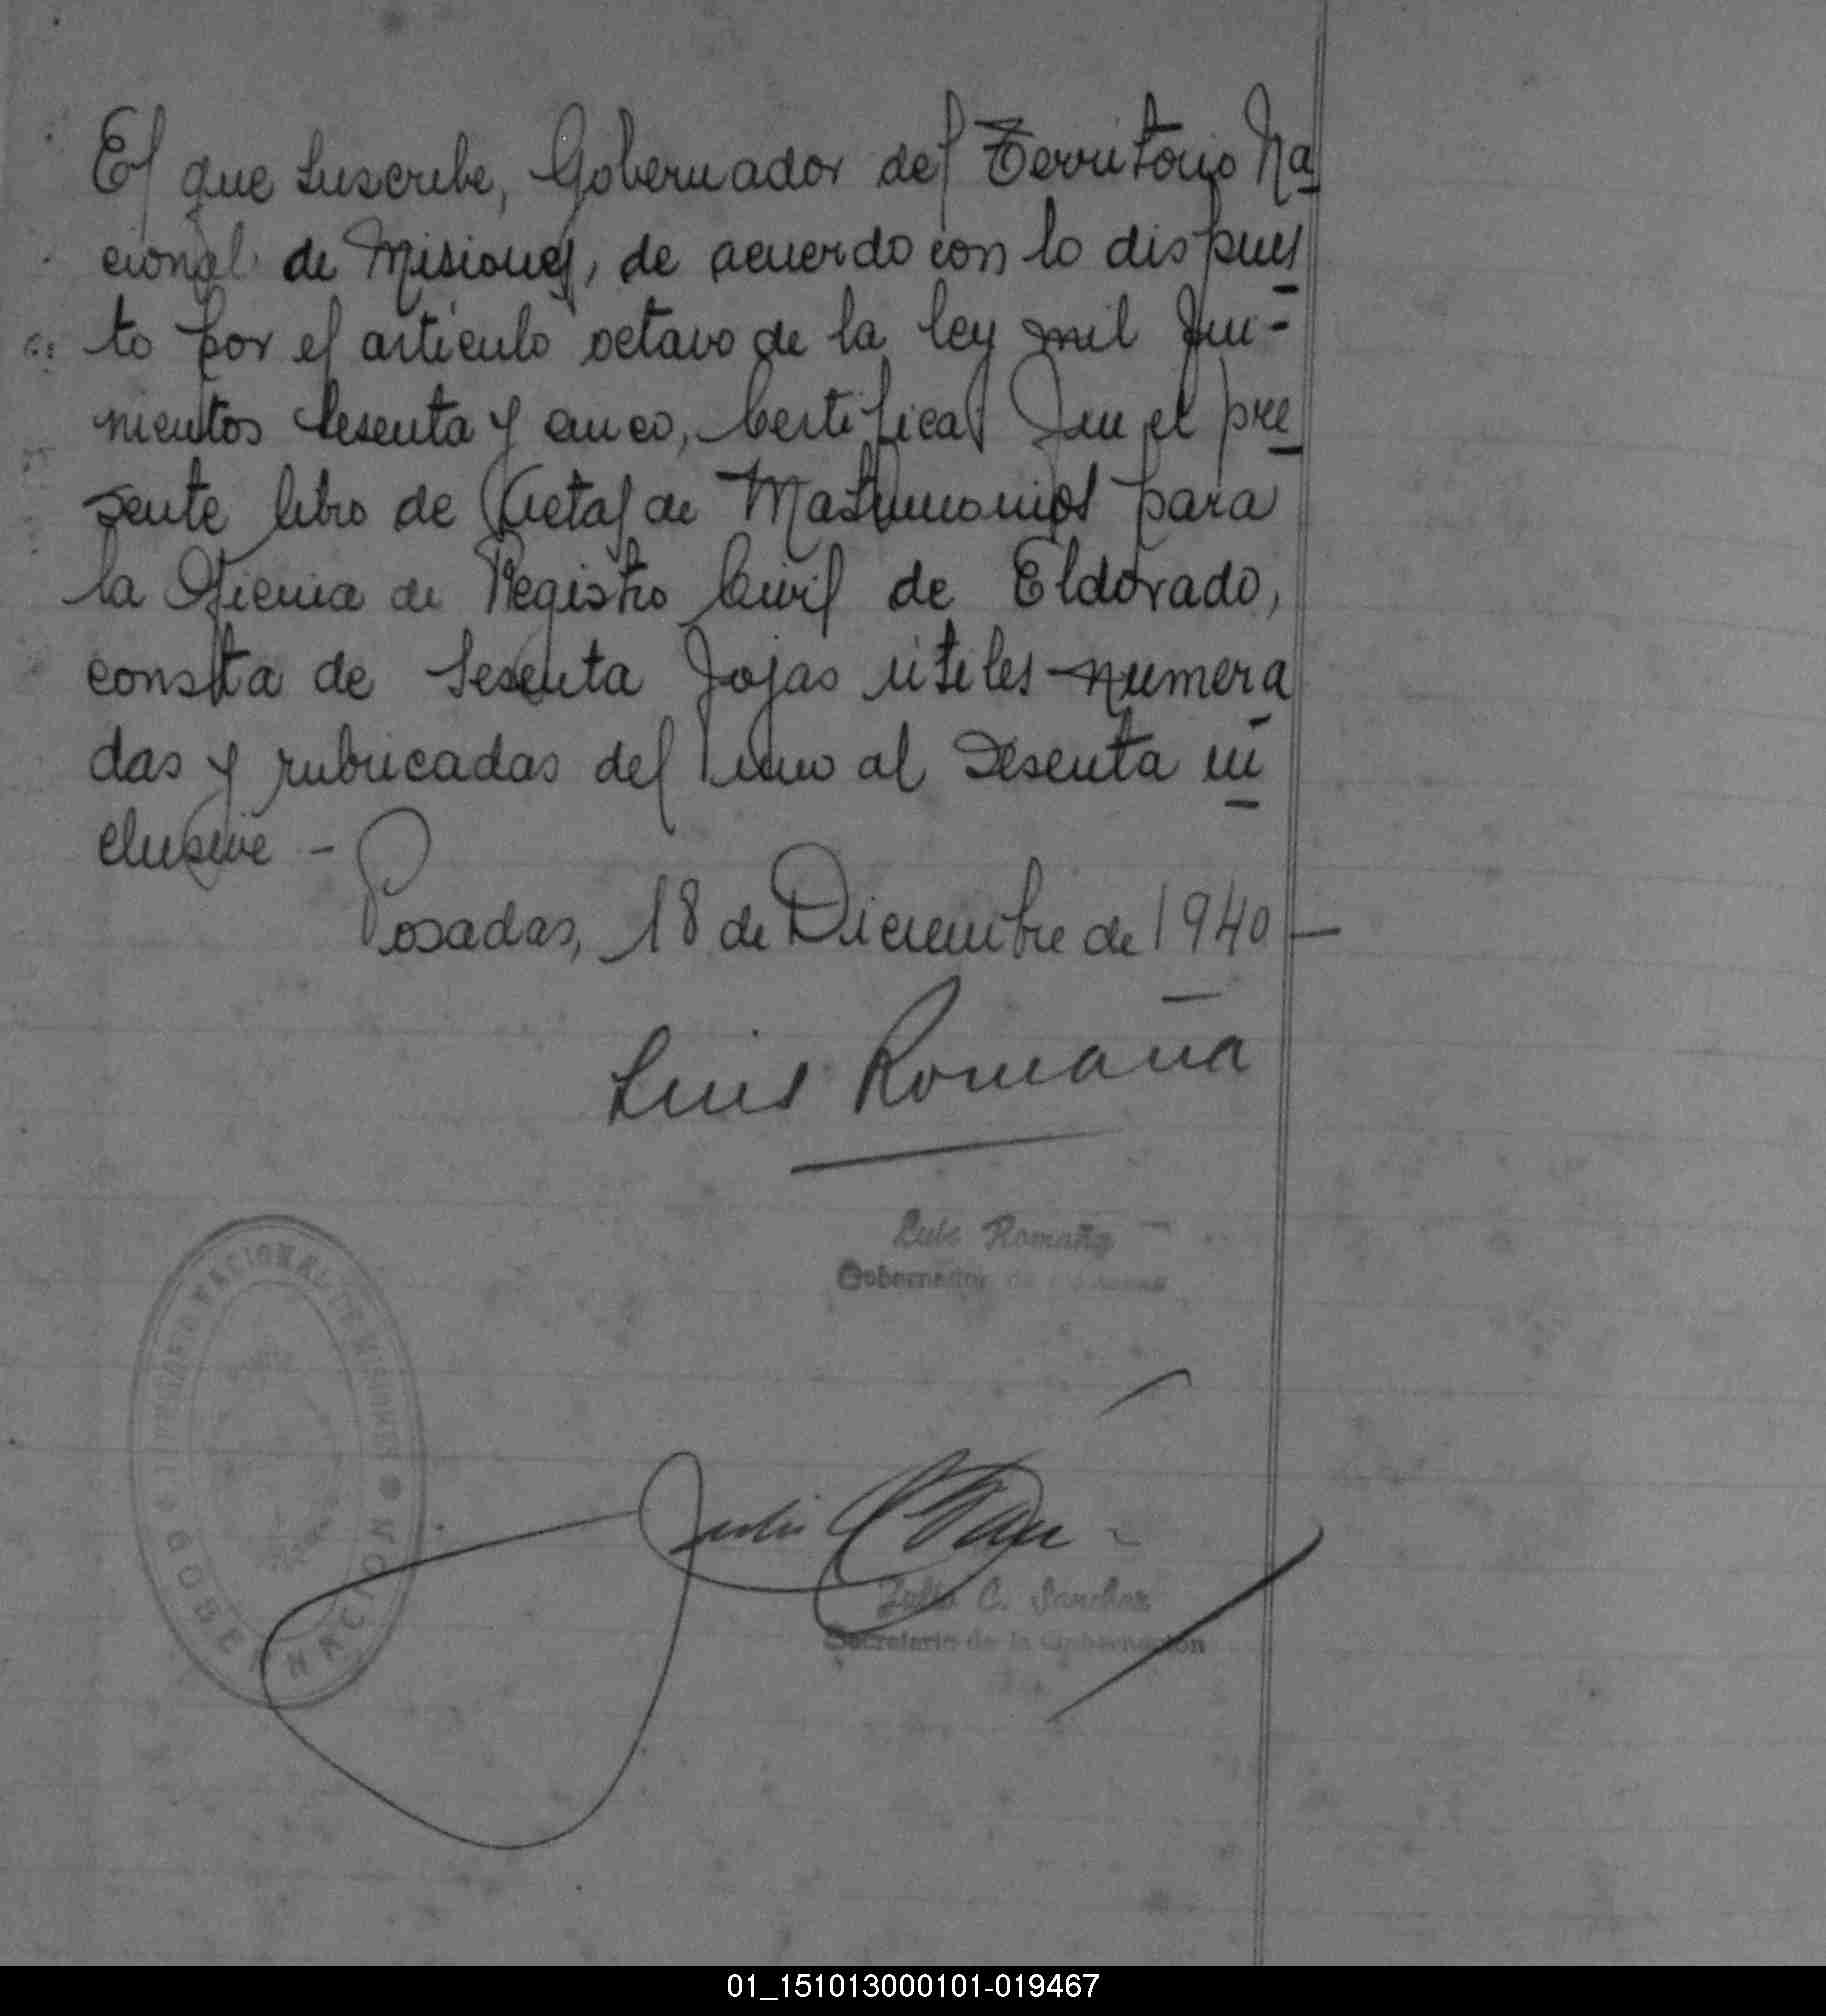 El que suscribe, Gobernador del Territorio Na
cional de Misiones, de acuerdo con lo dispues
to por el artículo octavo de la ley mil qui-
nientos sesenta y cinco, Certifica: Que el pre
sente libro de Actas de Matrimonios para
la Oficina de Registro Civil de Eldorado,
consta de sesenta fojas útiles numera
das y rubricadas del uno al sesenta in
clusive -
Posadas, 18 de Diciembre de 1940 -
Luis Romaña
Luis Romaña
Gobernador de
NACIONAL DE MISIONES
GOBERNACION
Julio C.
Julio C. Sanchez
Secretario de la Gobernación
01_151013000101-019467